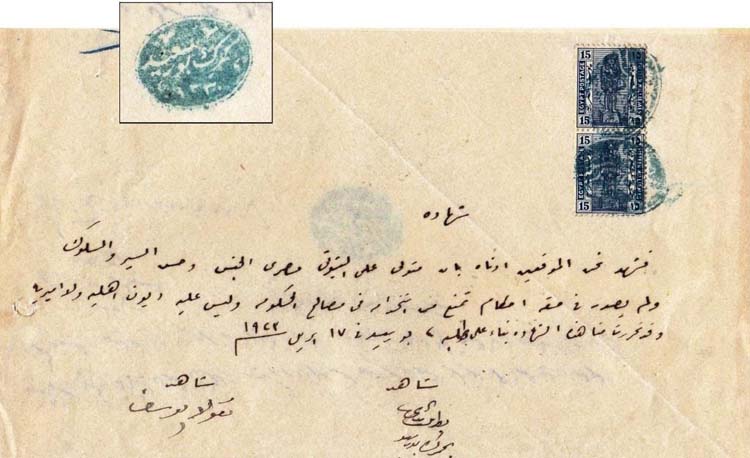 جمرك بورسعيد
EGYPT POSTAGE
15 15
EGYPT POSTAGE
15 15
شهاده
نشهد نحن الموقعين ادناه بان متولى على مصرى الجنس وحسن السير والسلوك
ولم يصدر فى حقه احكام تمنع من فى مصالح الحكومه وليس عليه ديون اهليه ولا اميريه
وقد تحررت منا هذه الشهاده بناء على طلبه بورسعيد فى ١٧ ابريل ١٩٢٢
شاهد
شاهد
نقولا يوسف